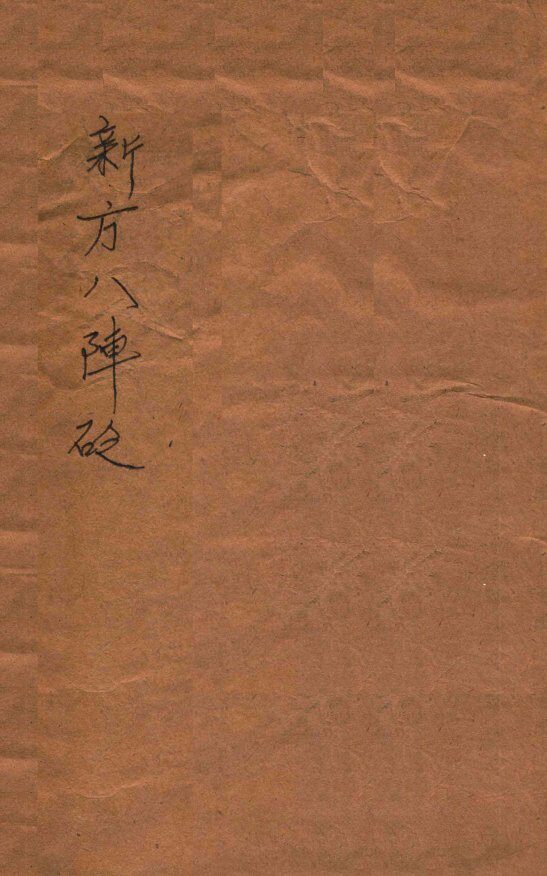 新方八陣砭